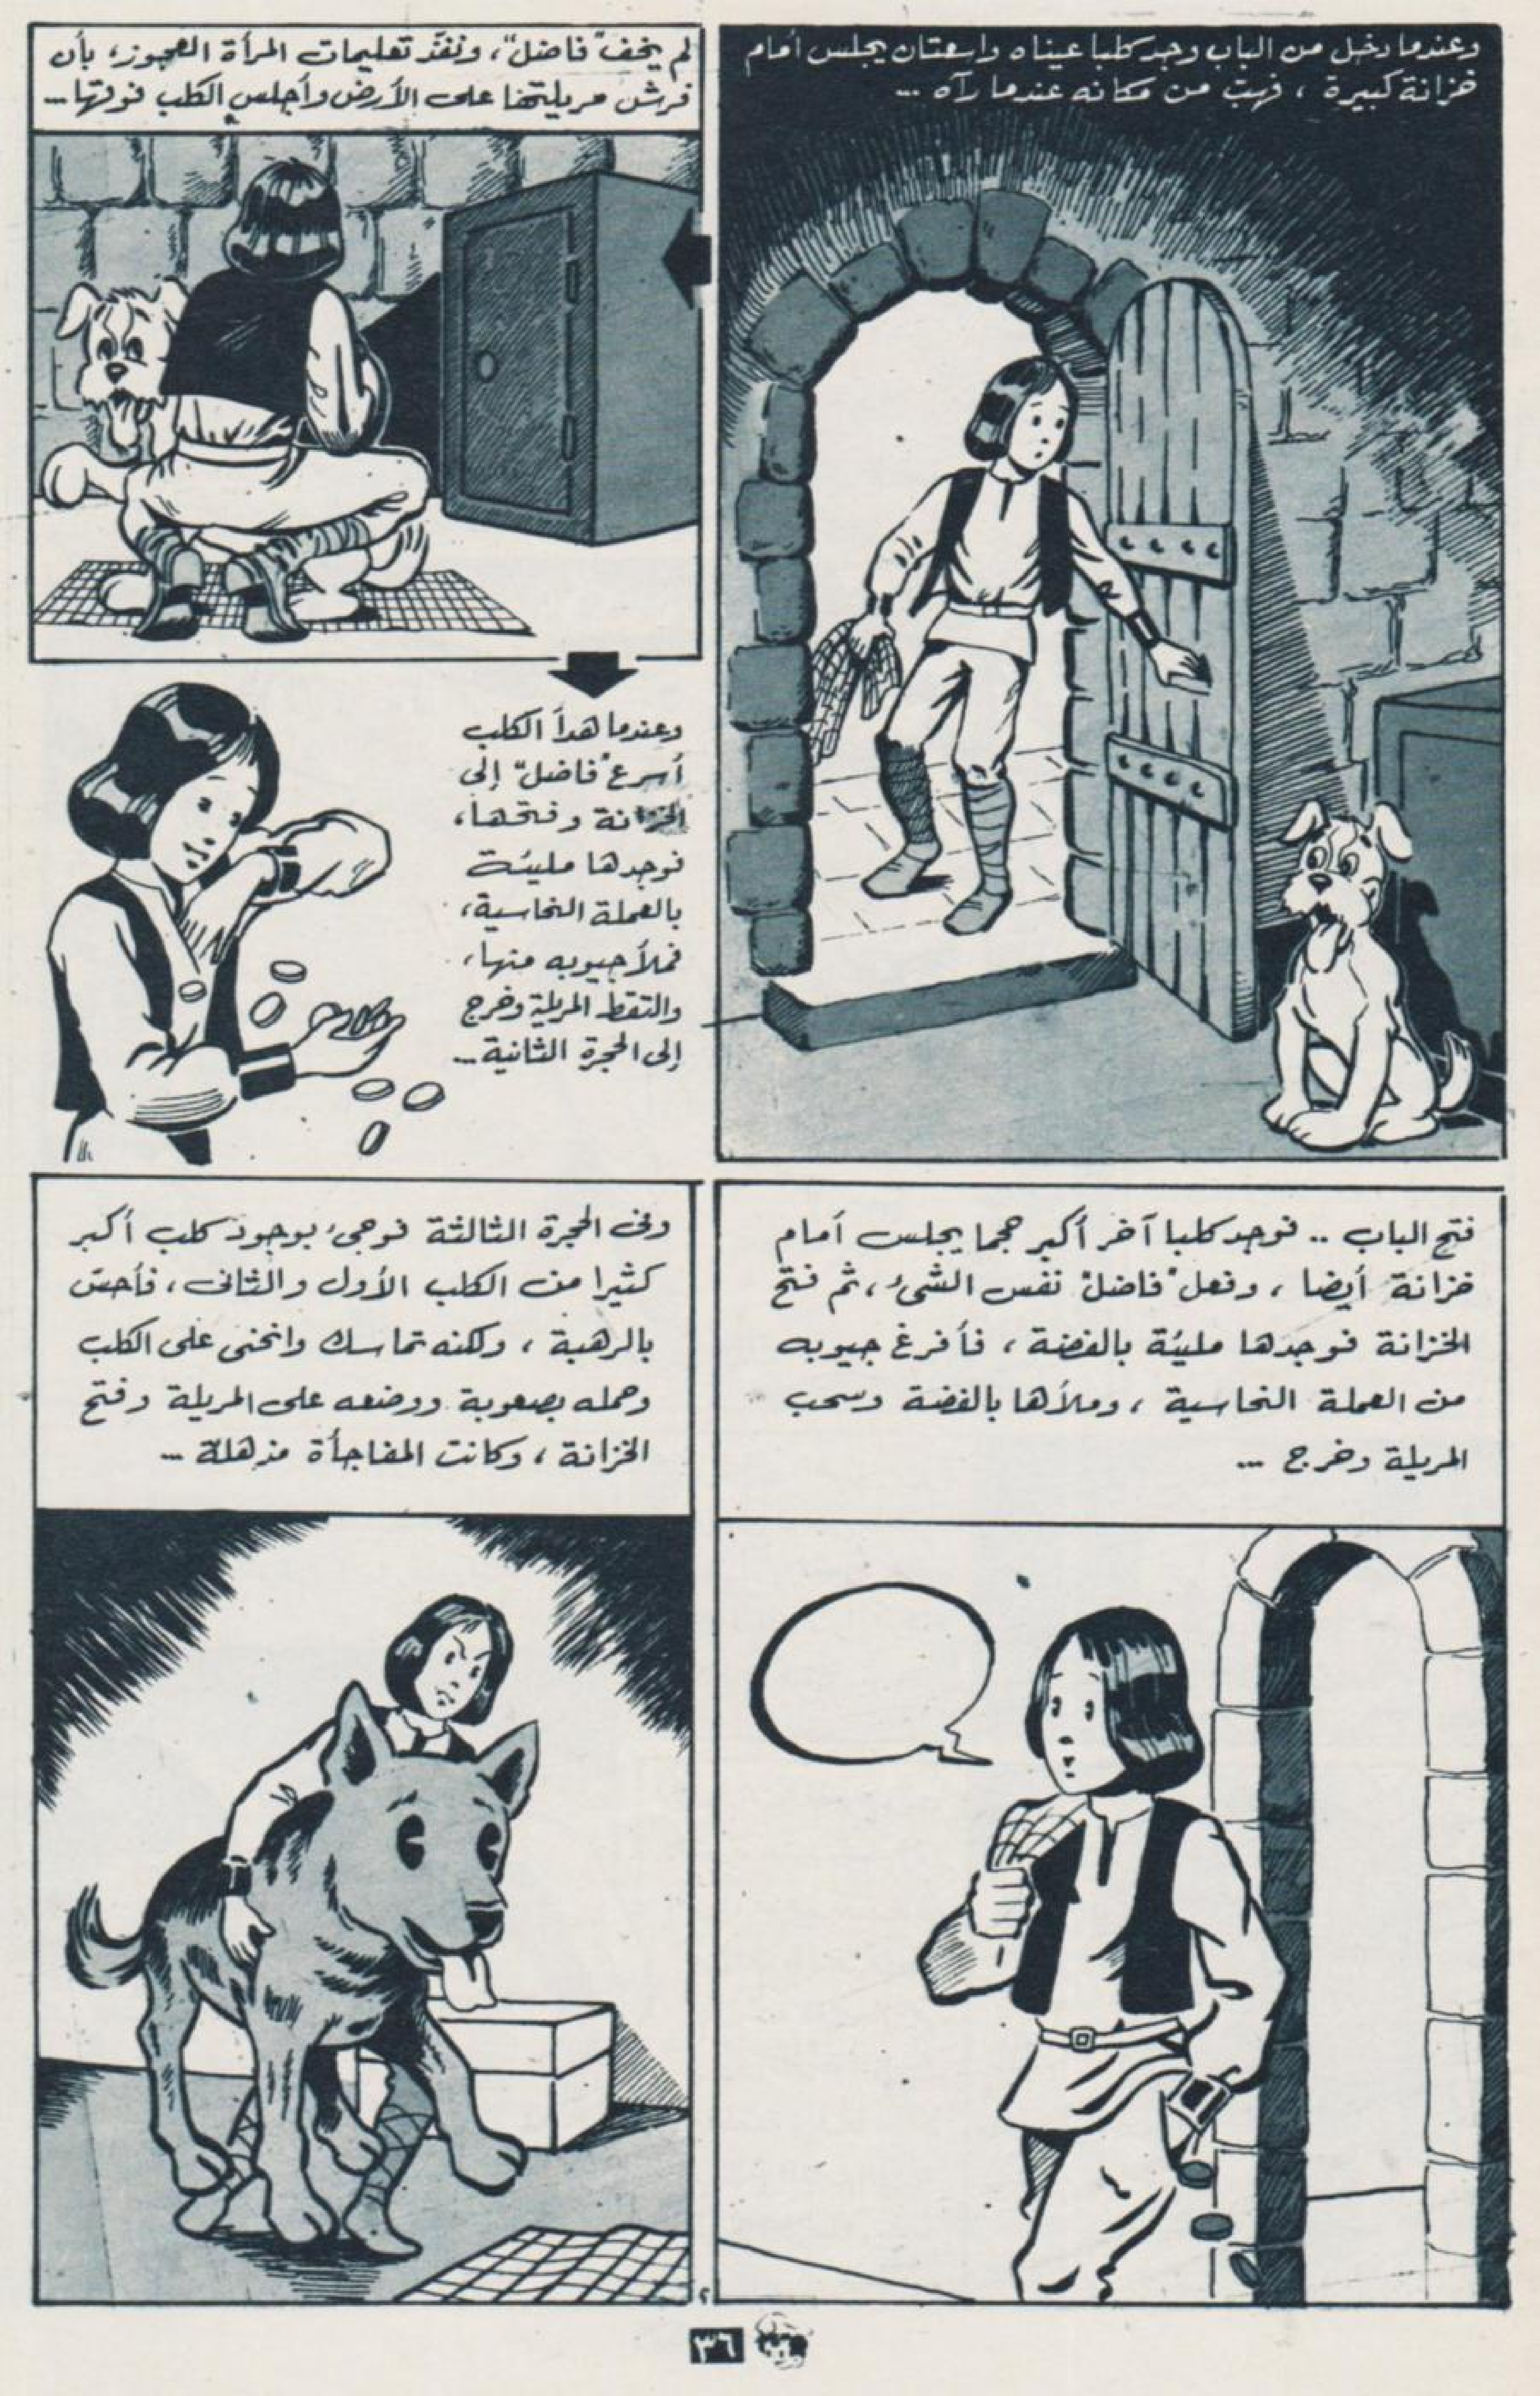 وعندما دخل من الباب وجد كلبا عيناه واسعتان يجلس أمام
خزانة كبيرة ، فهبّ من مكانه عندما رآه ...
لم يخف "فاضل"، ونفّذ تعليمات المرأة العجوز، بأن
فرش مريلتها على الأرض وأجلس الكلب فوقها...
وعندما هدأ الكلب
أسرع "فاضل" إلى
الخزانة وفتحها،
فوجدها مليئة
بالعملة النحاسية،
فملأ جيوبه منها،
والتقط المريلة وخرج
إلى الحجرة الثانية...
فتح الباب .. فوجد كلبا آخر أكبر حجما يجلس أمام
خزانة أيضا ، وفعل "فاضل" نفس الشئ ، ثم فتح
الخزانة فوجدها مليئة بالفضة ، فأفرغ جيوبه
من العملة النحاسية ، وملأها بالفضة وسحب
المريلة وخرج ...
وفى الحجرة الثالثة فوجئ بوجود كلب أكبر
كثيرا من الكلب الأول والثانى ، فأحسّ
بالرهبة ، ولكنه تماسك وانحنى على الكلب
وحمله بصعوبة ووضعه على المريلة وفتح
الخزانة ، وكانت المفاجأة مذهلة ...
٣٦